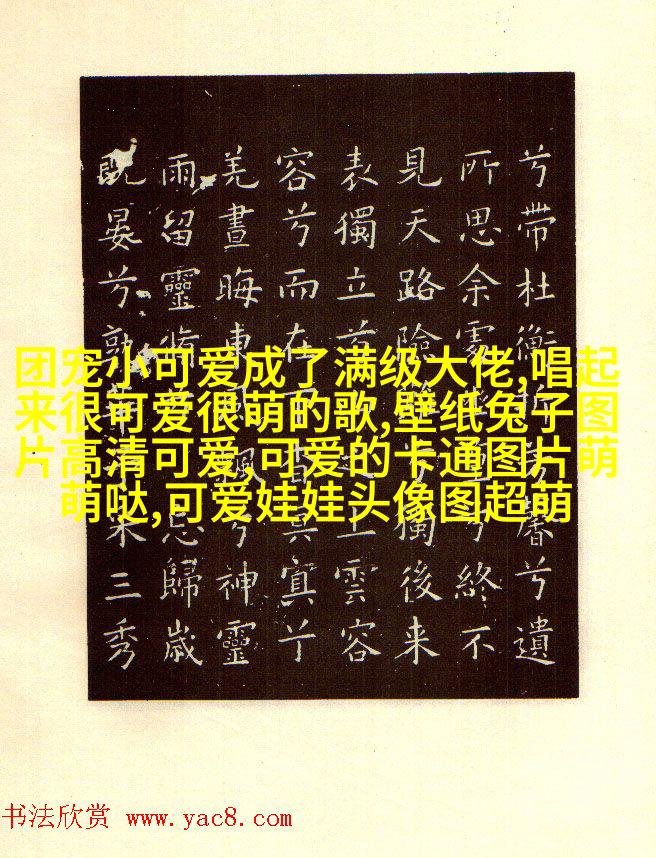 团宠小可爱成了满级大佬,唱起
来很可爱很萌的歌,壁纸兔子图
片高清可爱,可爱的卡通图片萌
萌哒,可爱娃娃头像图超萌
兮帶杜衡馨兮遺
所思余處兮終不
見天路險獨後来
表獨立上雲容
容兮而在冥冥兮
羌晝晦東飄兮神靈
雨留靈脩忘歸歲
既晏兮孰采三秀
书法欣赏 www.yac8.com